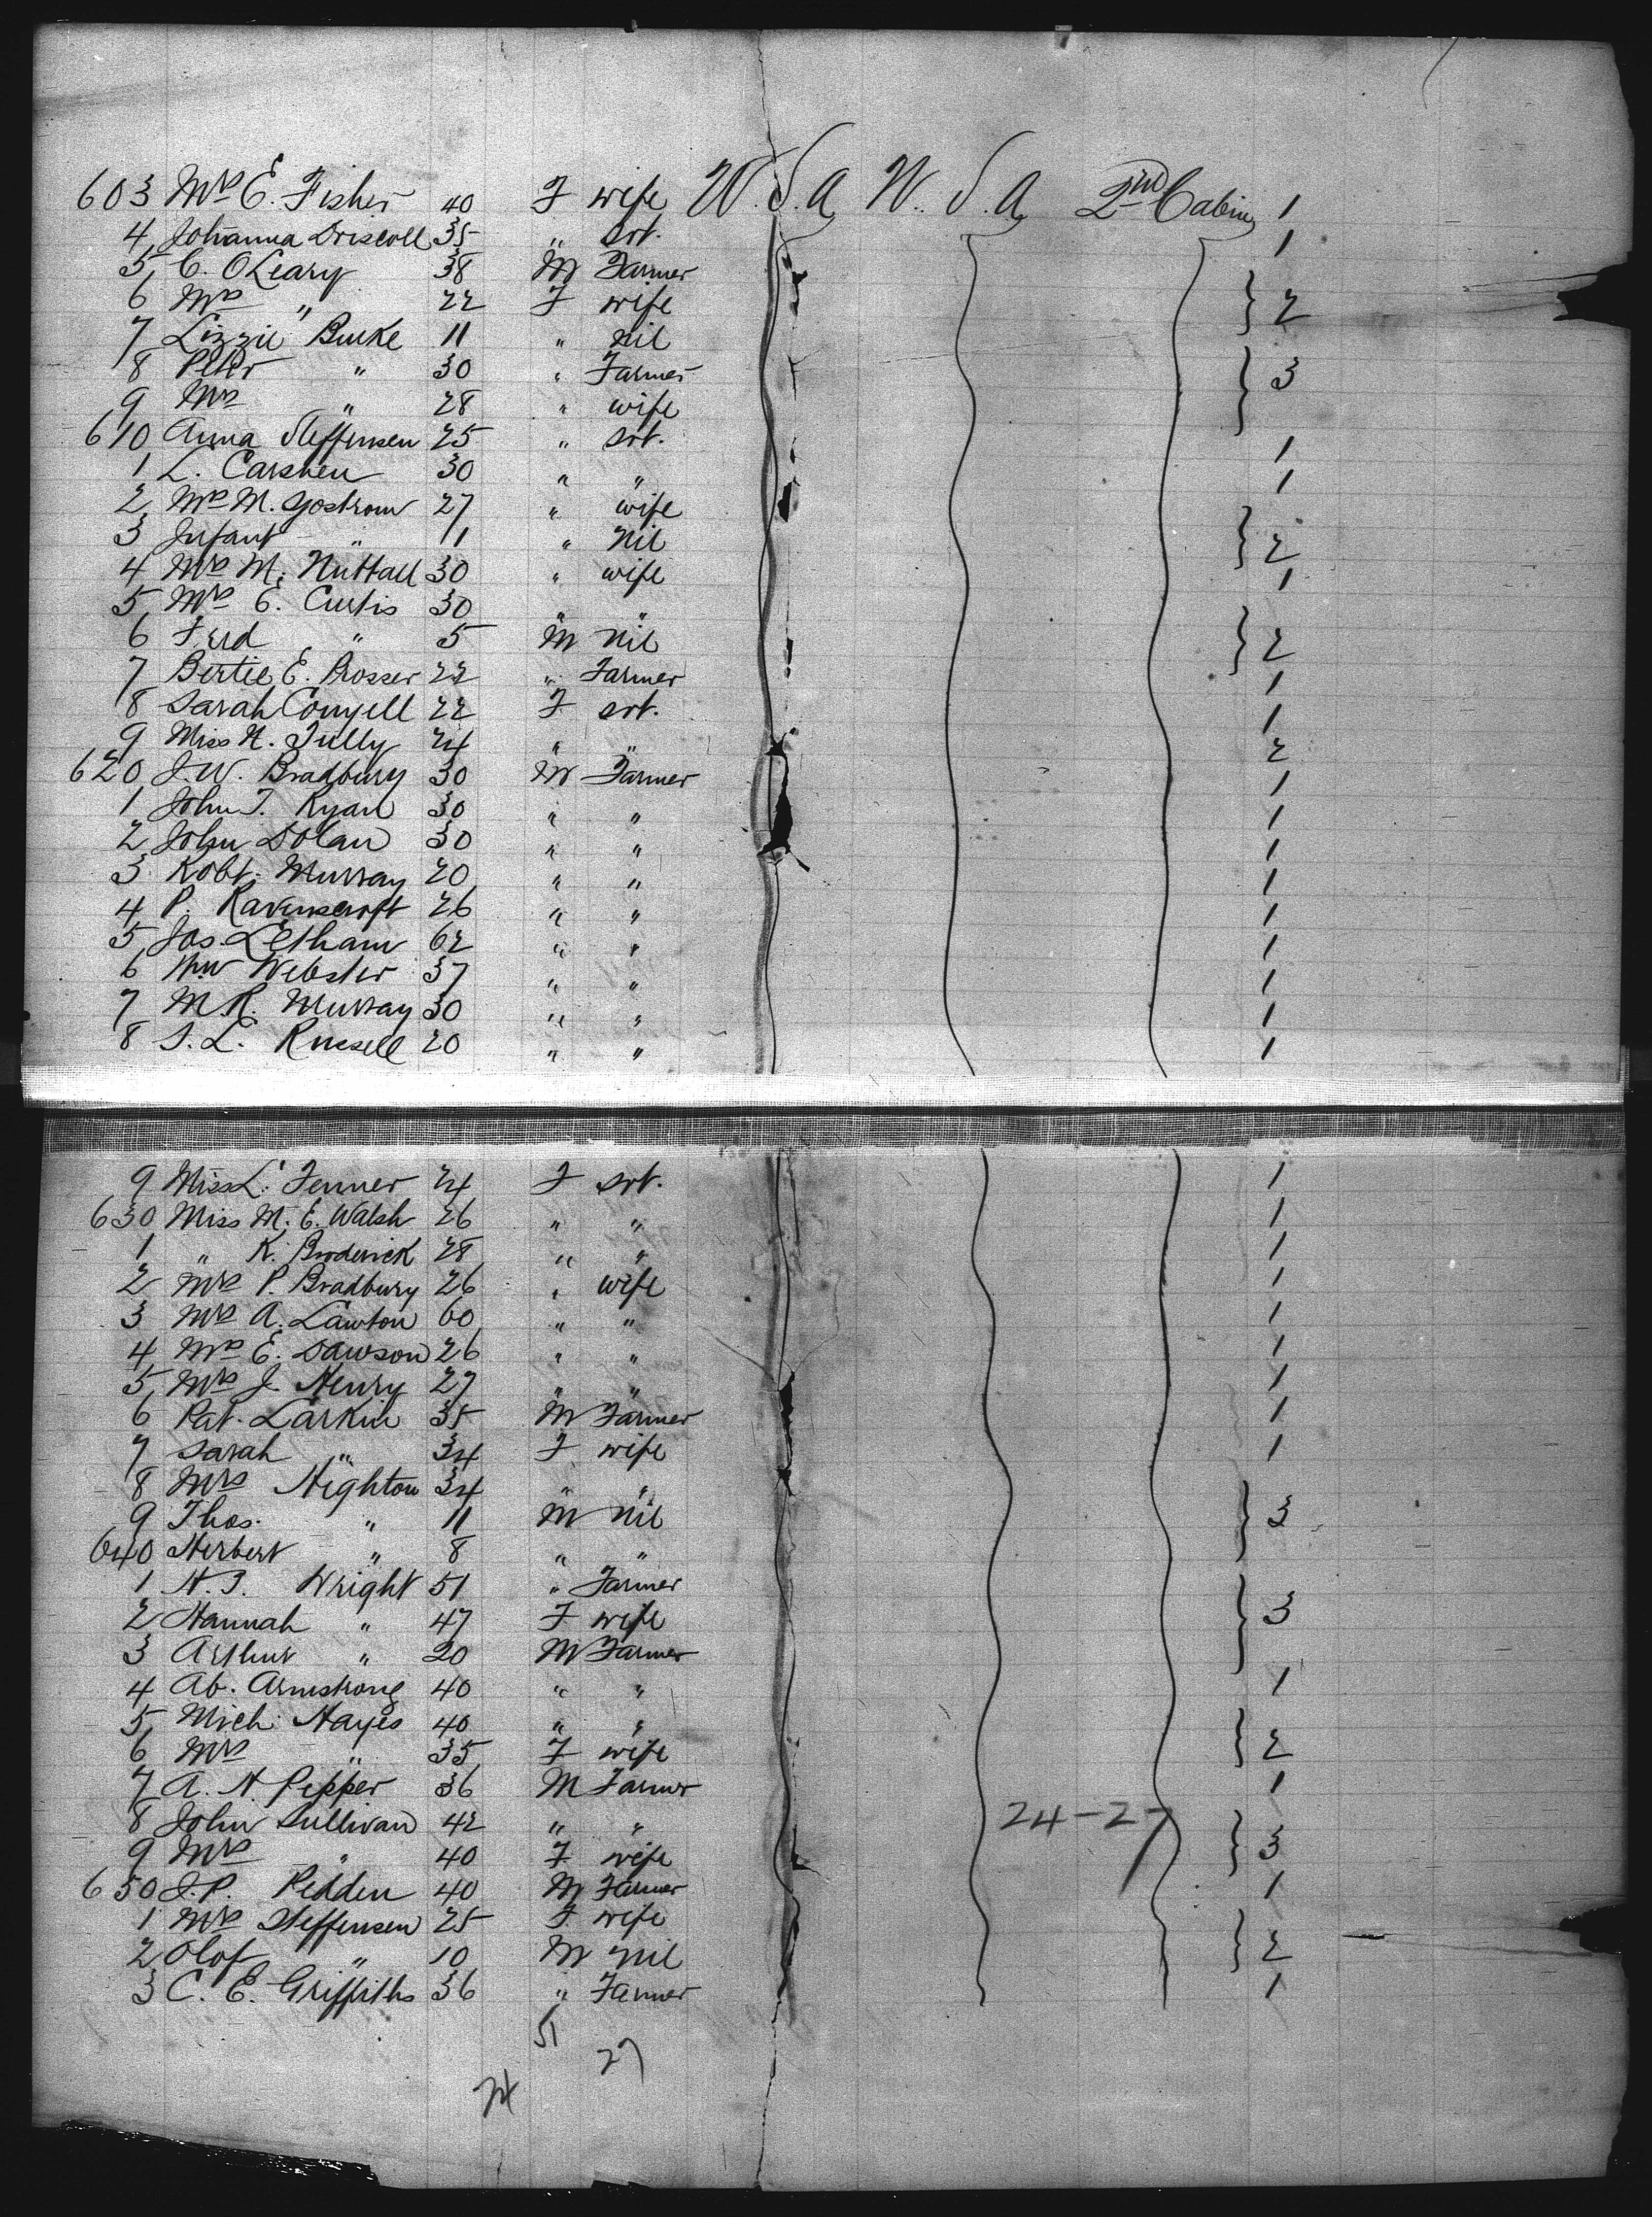 603 Mrs E. Fisher 40 F wife U.S.A. U.S.A. 2nd Cabin 1
4 Johanna Driscoll 35 " srt. 1
5 C. O'Leary 38 M Farmer
6 Mrs " 22 F wife } 2
7 Lizzie Burke 11 " nil
8 Peter " 30 " Farmer } 3
9 Mrs " 28 " wife
610 Anna Steffensen 25 " srt. 1
1 L. Carshen 30 " " 1
2 Mrs M. 27 " wife
3 Infant " 11 " Nil } 2
4 Mrs M. Nuttall 30 " wife 1
5 Mrs E. Curtis 30 " "
6 Fred " 5 M Nil } 2
7 Bertie E. Prosser 22 " Farmer 1
8 Sarah Conyell 22 F srt. 1
9 Miss H. Tully 24 " " 2
620 J.W. Bradbury 30 M Farmer 1
1 John T. Ryan 30 " " 1
2 John Dolan 30 " " 1
3 Robt. Murray 20 " " 1
4 P. Ravenscroft 26 " " 1
5 Jos. Letham 62 " " 1
6 Wm Webster 37 " " 1
7 M.R. Murray 30 " " 1
8 S.L. Russell 20 " " 1
9 Miss L. Fenner 24 F srt. 1
630 Miss M.E. Walsh 26 " " 1
1 " K. Broderick 28 " " 1
2 Mrs P. Bradbury 26 " wife 1
3 Mrs A. Lawton 60 " " 1
4 Mrs E. Dawson 26 " " 1
5 Mrs J. Henry 27 " " 1
6 Pat. Larkin 35 M Farmer 1
7 Sarah " 34 F wife 1
8 Mrs Highton 34 " "
9 Thos. " 11 M Nil } 3
640 Herbert " 8 " "
1 H.J. Wright 51 " Farmer
2 Hannah " 47 F wife } 3
3 Arthur " 20 M Farmer
4 Ab. Armstrong 40 " " 1
5 Mich. Hayes 40 " "
6 Mrs " 35 F wife } 2
7 A.H. Pepper 36 M Farmer 1
8 John Sullivan 42 " " 24-27
9 Mrs " 40 F wife } 3
650 J.P. Pedden 40 M Farmer 1
1 Mrs Steffensen 25 F wife
2 Olof " 10 M nil } 2
3 C.E. Griffiths 36 " Farmer 1
51
27
24